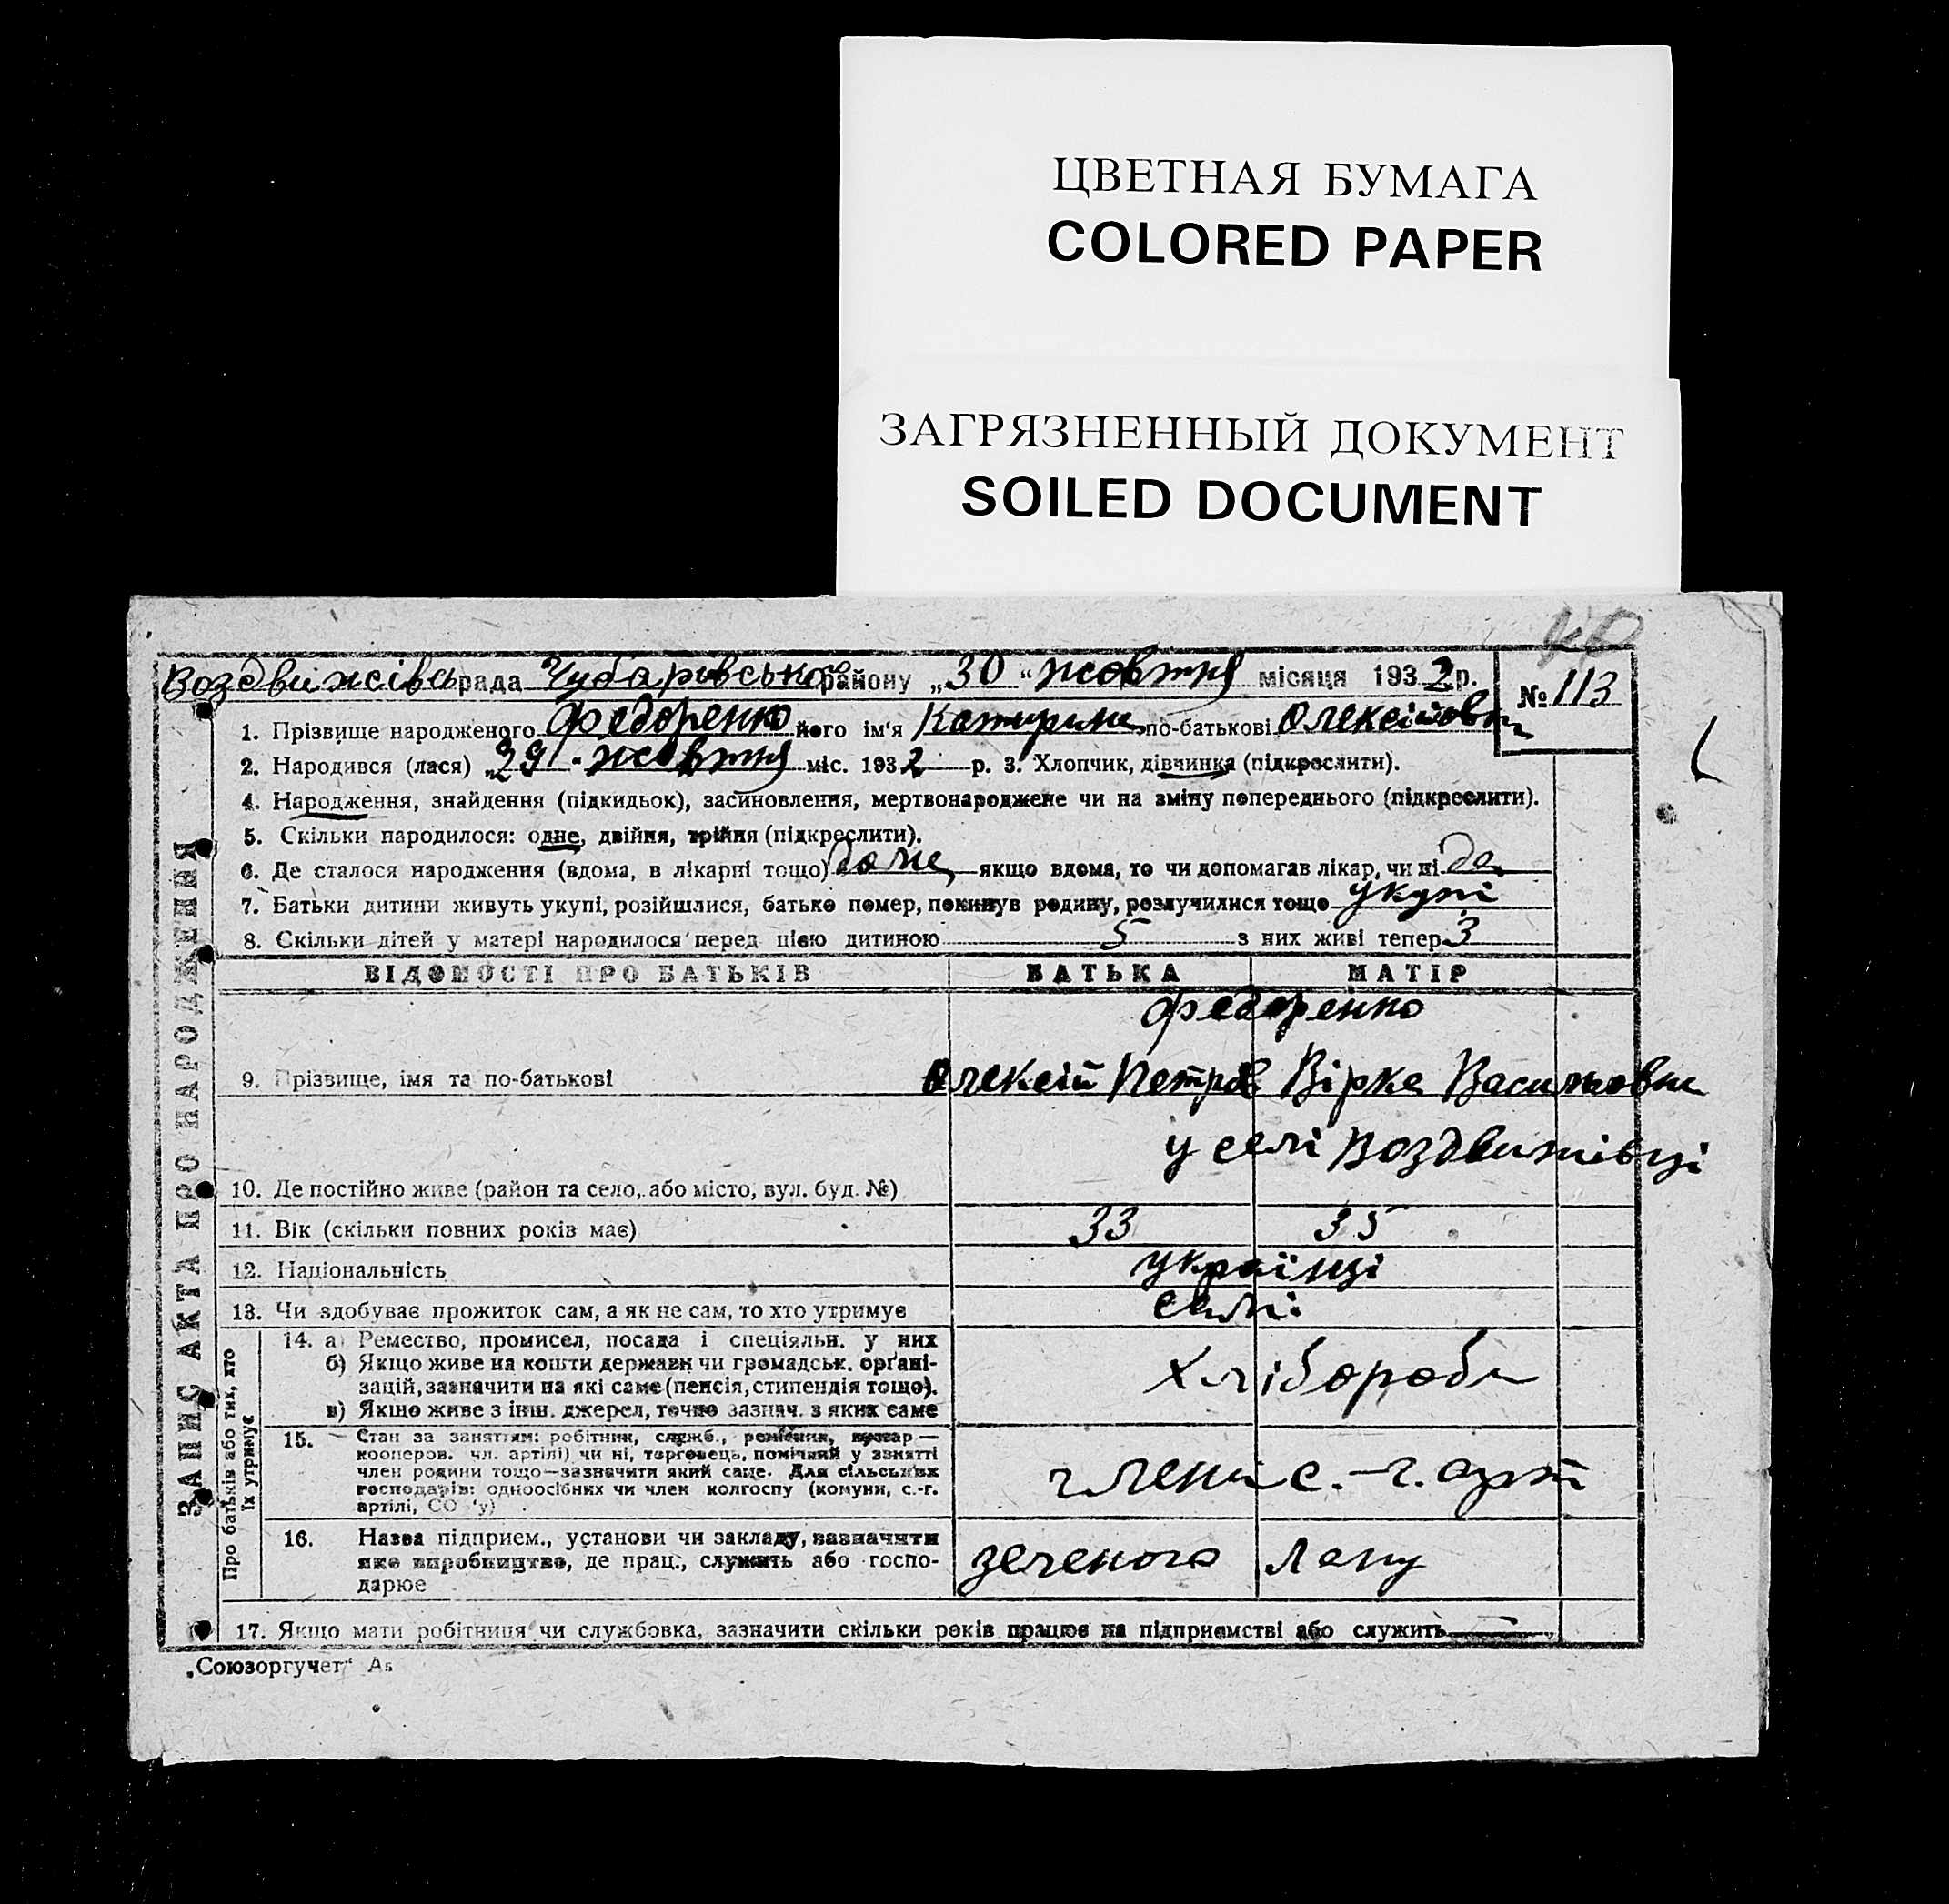 ЦВЕТНАЯ БУМАГА
COLORED PAPER
ЗАГРЯЗНЕННЫЙ ДОКУМЕНТ
SOILED DOCUMENT
40
Воздвижівсь рада Чубарівсько району „30“ жовтня місяця 1932 р.
№ 113
1. Прізвище народженого Федоренко його ім'я Катирина по-батькові Олексійовна
2. Народився (лася) „29“ жовтня міс. 1932 р. 3. Хлопчик, дівчинка (підкреслити).
4. Народження, знайдення (підкидьок), засиновлення, мертвонароджене чи на зміну попереднього (підкреслити).
5. Скільки народилося: одне, двійня, трійня (підкреслити).
6. Де сталося народження (вдома, в лікарні тощо) дома якщо вдома, то чи допомагав лікар, чи ні да
7. Батьки дитини живуть укупі, розійшлися, батько помер, покинув родину, розлучилися тощо укупі
8. Скільки дітей у матері народилося перед цією дитиною 5 з них живі тепер 3
ВІДОМОСТІ ПРО БАТЬКІВ БАТЬКА МАТІР
Федоренко
9. Прізвище, імя та по-батькові Олексій Петров Вірка Васильовна
у селі Воздвижівці
10. Де постійно живе (район та село, або місто, вул. буд. №)
11. Вік (скільки повних років має) 33 35
12. Національність українці
13. Чи здобуває прожиток сам, а як не сам, то хто утримує самі
14. а) Ремество, промисел, посада і спеціяльн. у них
б) Якщо живе на кошти держави чи громадськ. органі-
зацій, зазначити на які саме (пенсія, стипендія тощо).
в) Якщо живе з інш. джерел, точно зазнач. з яких саме
Хлібороби
15. Стан за заняттям: робітник, служб., ремісник, кустар —
кооперов. чл. артілі) чи ні, торговець, помічний у занятті
член родини тощо—зазначити який саме. Для сільських
господарів: одноосібних чи член колгоспу (комуни, с.-г.
артілі, СО у)
члени с.-г. арт
16. Назва підприєм., установи чи закладу, зазначити
яке виробництво, де прац., служить або госпо-
дарює
зеленого лану
17. Якщо мати робітниця чи службовка, зазначити скільки років працює на підприємстві або служить —
ЗАПИС АКТА ПРО НАРОДЖЕННЯ
Про батьків або тих, хто
їх утримує
„Союзоргучет“